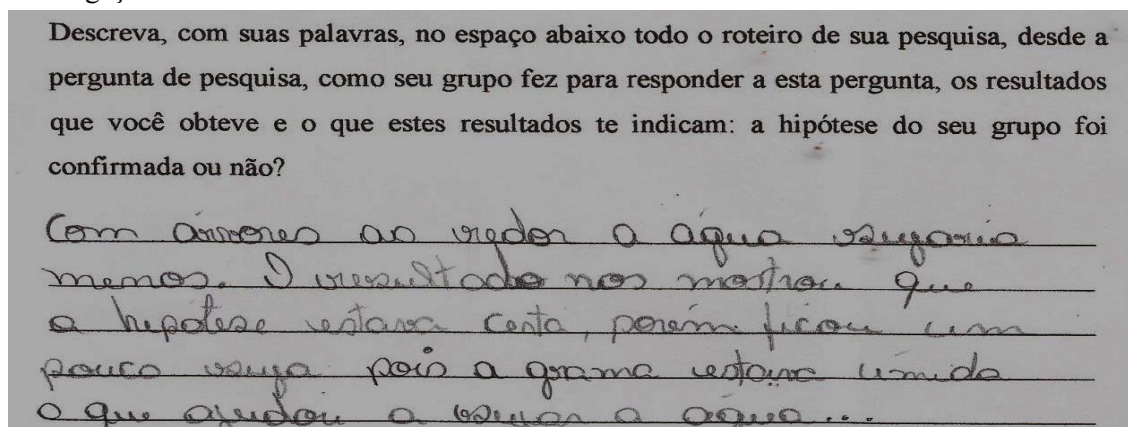 Descreva, com suas palavras, no espaço abaixo todo o roteiro de sua pesquisa, desde a
pergunta de pesquisa, como seu grupo fez para responder a esta pergunta, os resultados
que você obteve e o que estes resultados te indicam: a hipótese do seu grupo foi
confirmada ou não?
Com árvores ao redor a água sujaria
menos. O resultado nos mostrou que
a hepotese estava certa, porém ficou um
pouco suja pois a grama estava úmida
o que ajudou a sujar a água...